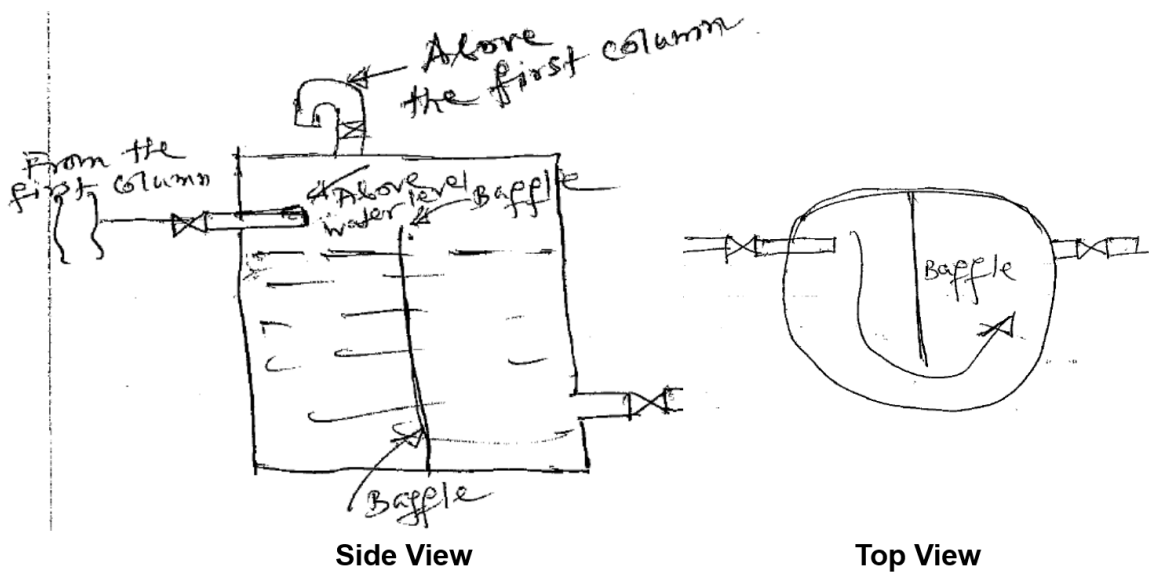 Above
the first column
From the
first column
Above
water level
Baffle
Baffle
Baffle
Side View
Top View